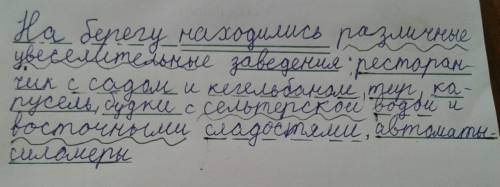 На берегу находились различные
увеселительные заведения: ресторан-
чик с садом и кегельбаном, тир, ка-
русель, будки с сельтерской водой и
восточными сладостями, автоматы-
силомеры